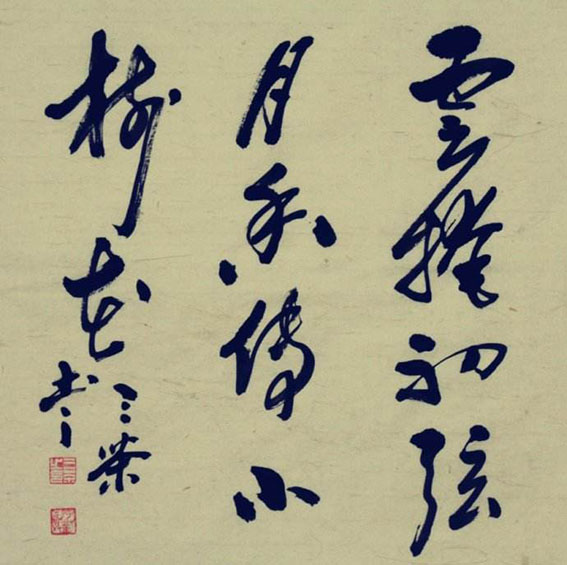 雲掩初弦
月香傳小
樹花
三栄
書